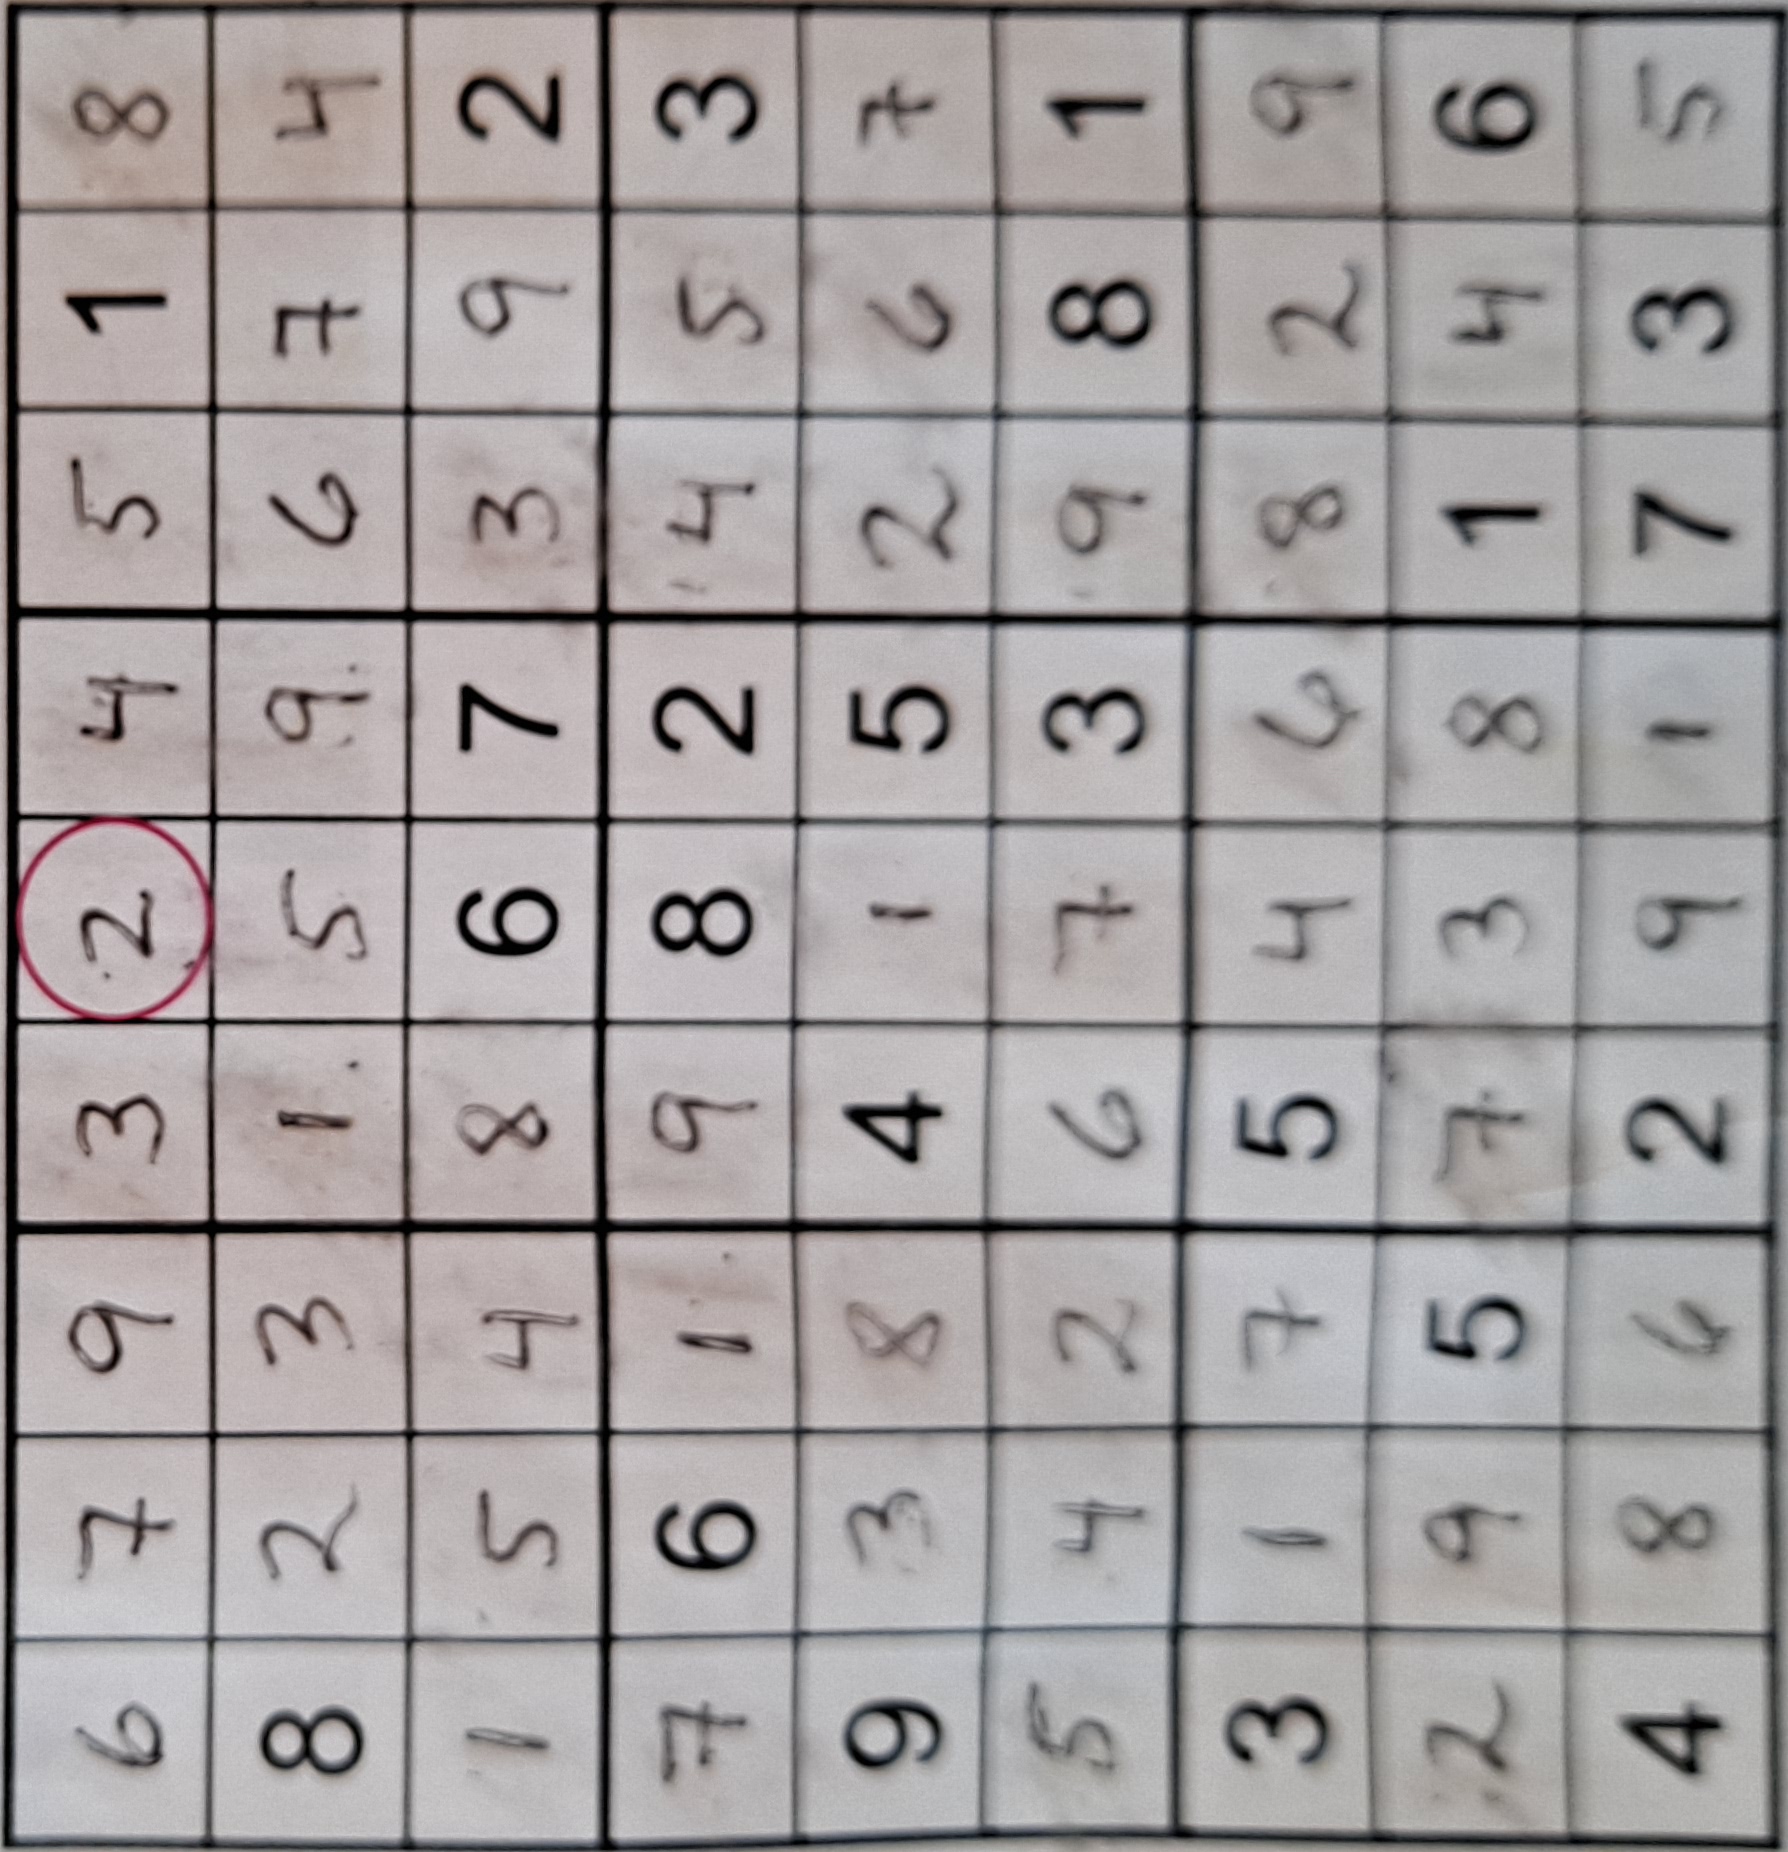 6 7 9 3 2 4 5 1 8
8 2 3 1 5 9 6 7 4
1 5 4 8 6 7 3 9 2
7 6 1 9 8 2 4 5 3
9 3 8 4 1 5 2 6 7
5 4 2 6 7 3 9 8 1
3 1 7 5 4 6 8 2 9
2 9 5 7 3 8 1 4 6
4 8 6 2 9 1 7 3 5